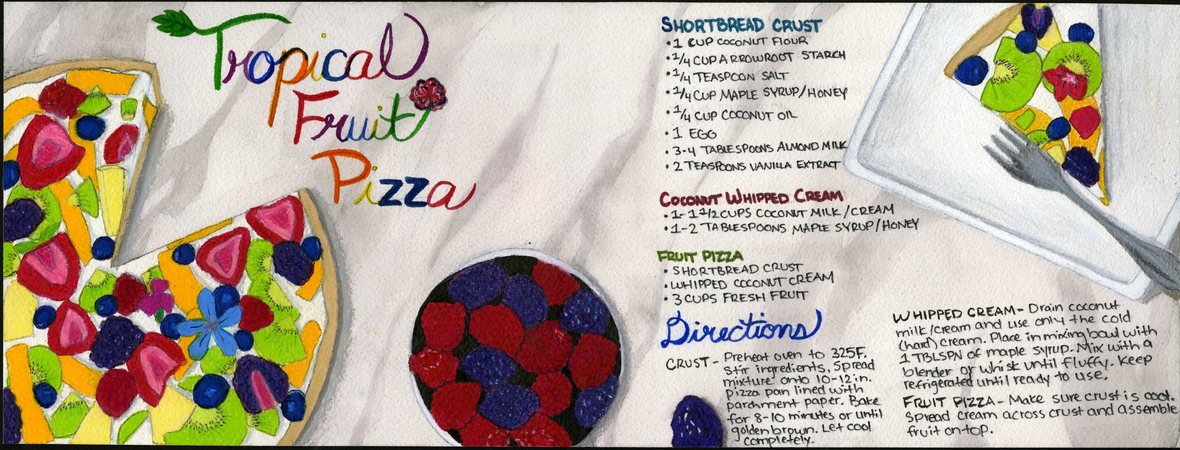 Tropical
Fruit
Pizza
SHORTBREAD CRUST
• 1 CUP COCONUT FLOUR
• 1/4 CUP ARROWROOT STARCH
• 1/4 TEASPOON SALT
• 1/4 CUP MAPLE SYRUP/HONEY
• 1/4 CUP COCONUT OIL
• 1 EGG
• 3-4 TABLESPOONS ALMOND MILK
• 2 TEASPOONS VANILLA EXTRACT
COCONUT WHIPPED CREAM
• 1-1 1/2 CUPS COCONUT MILK/CREAM
• 1-2 TABLESPOONS MAPLE SYRUP/HONEY
FRUIT PIZZA
• SHORTBREAD CRUST
• WHIPPED COCONUT CREAM
• 3 CUPS FRESH FRUIT
Directions
CRUST - Preheat oven to 325F.
Stir ingredients. Spread
mixture onto 10-12 in.
pizza pan lined with
parchment paper. Bake
for 8-10 minutes or until
golden brown. Let cool
completely.
WHIPPED CREAM - Drain coconut
milk/cream and use only the cold
(hard) cream. Place in mixing bowl with
1 TBLSPN of maple syrup. Mix with a
blender or whisk until fluffy. Keep
refrigerated until ready to use.
FRUIT PIZZA - Make sure crust is cool.
Spread cream across crust and assemble
fruit on top.